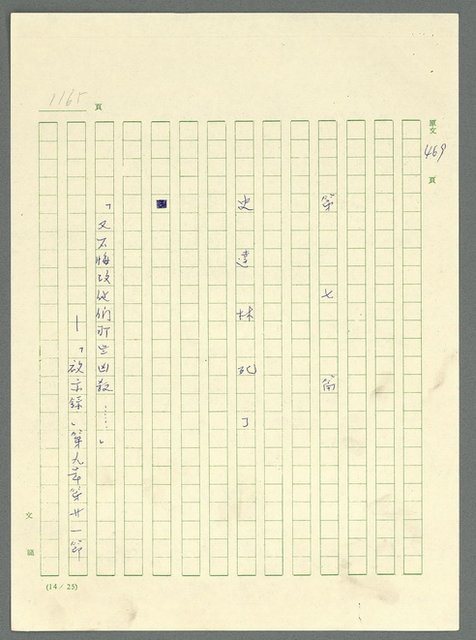 1165 頁
原文 469 頁
第七篇
史達林死了
「又不悔改他們那些凶殺……」
—「啟示錄」第九章第廿一節
文稿
(14/25)